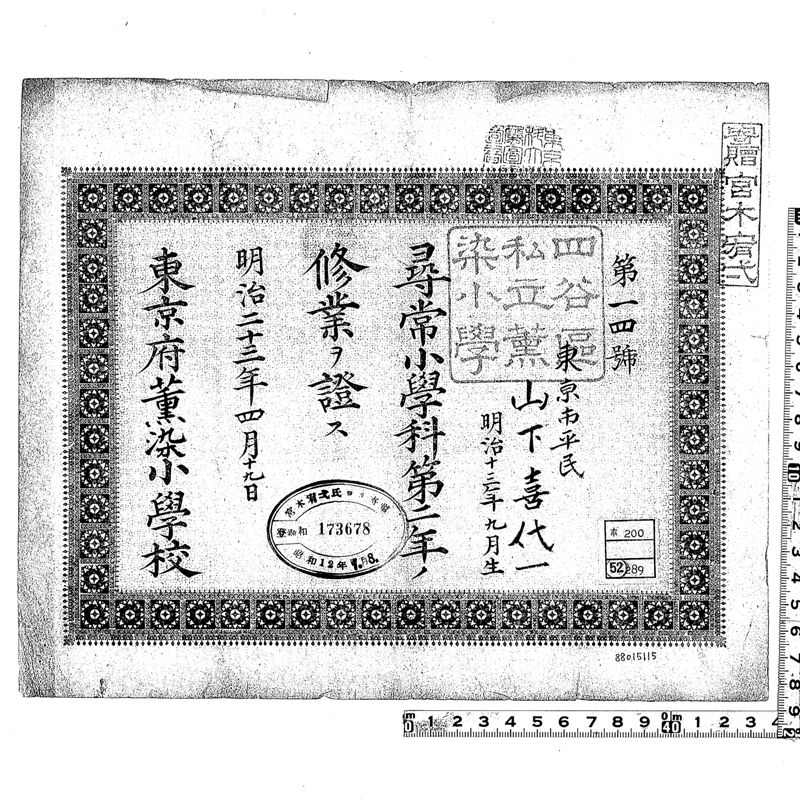 第一四號
東京市平民
山下喜代一
明治十三年九月生
尋常小學科第二年ノ
修業ヲ證ス
明治二十三年四月十九日
東京府薫染小學校
四谷區
私立薫
染小學
寄贈宮木宥弌
宮木宥弌氏
173678
昭和12年
市 200
52 289
88015115
0 1 2 3 4 5 6 7 8 9 10 1 2 3 4
1 2 3 4 5 6 7 8 9 10 1 2 3 4 5 6 7 8 9